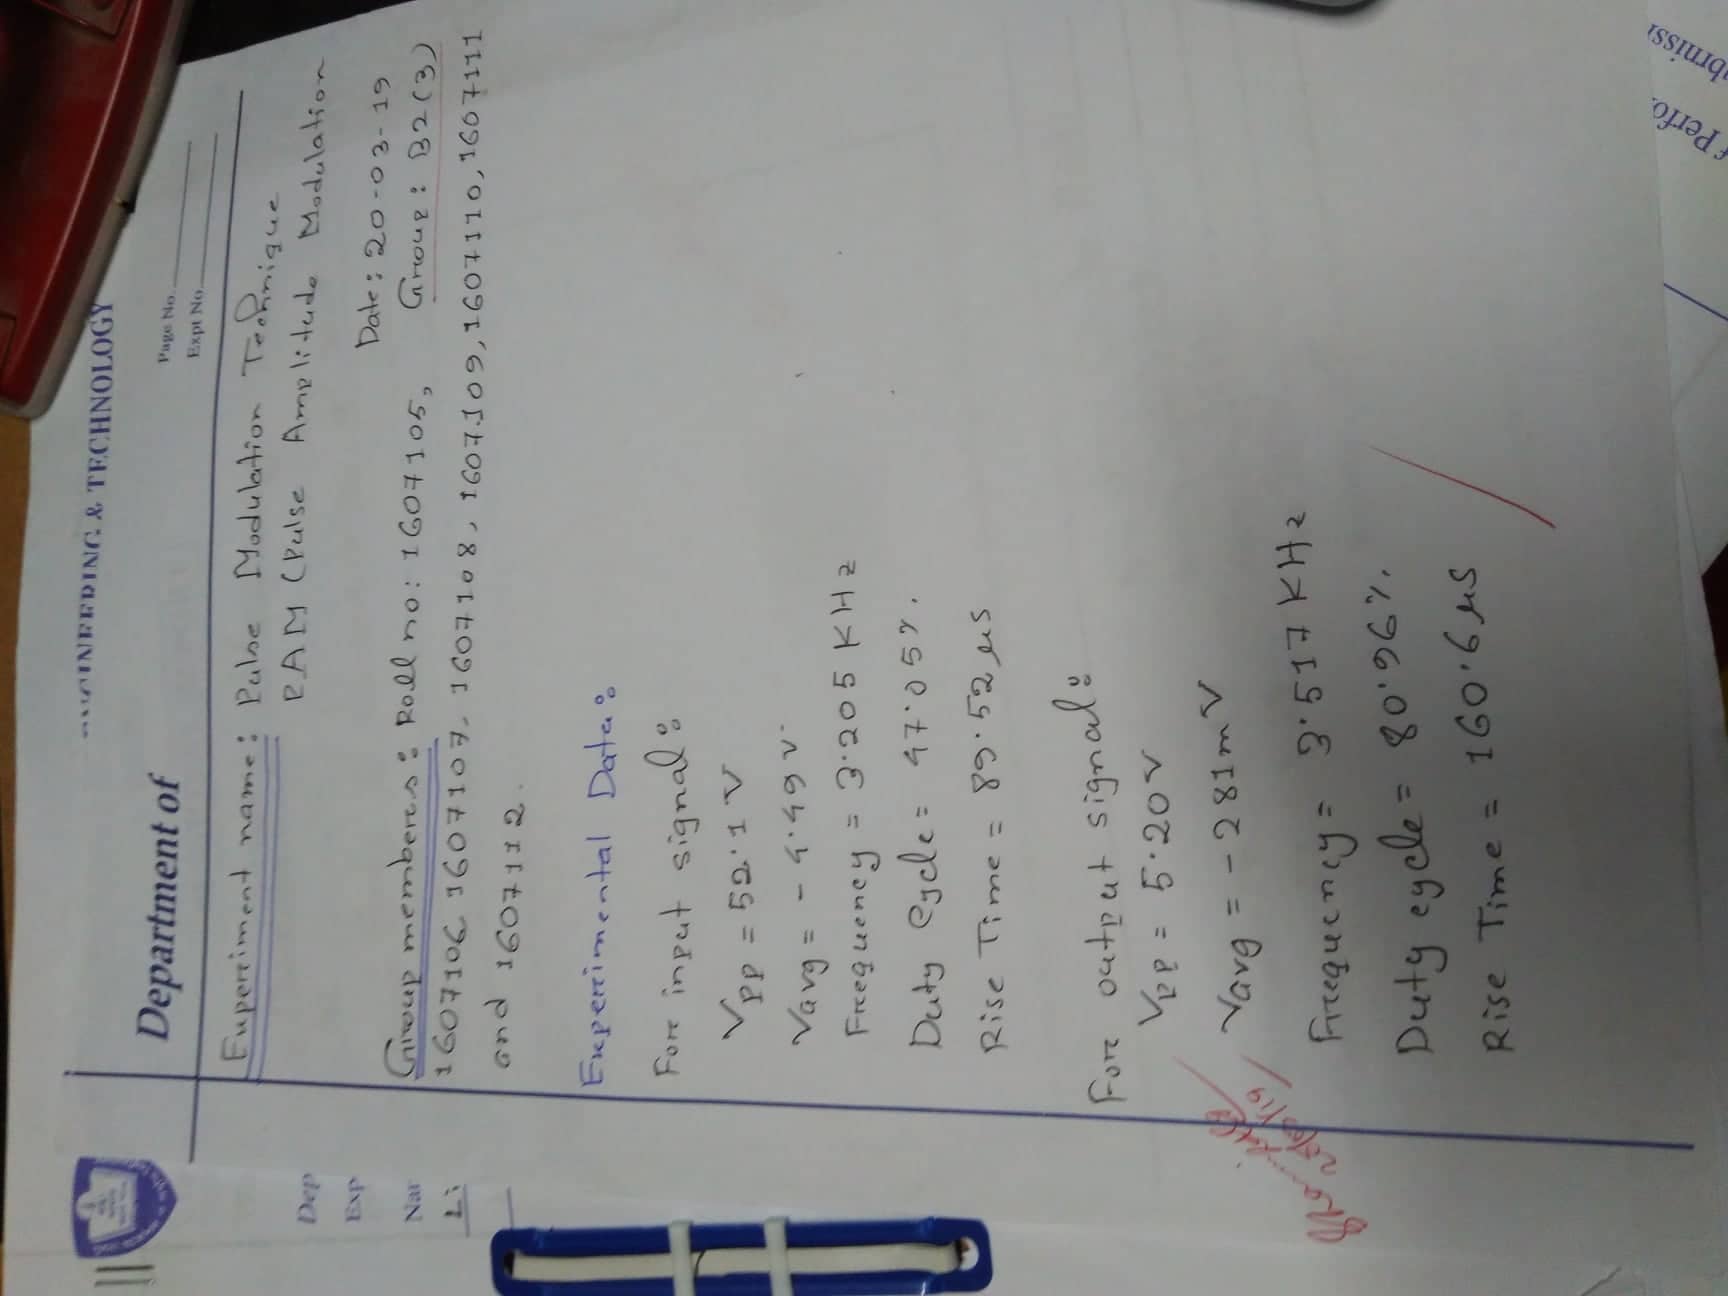 ENGINEERING & TECHNOLOGY
Department of
Page No.
Expt No.
Experiment name: Pulse Modulation Technique
PAM (Pulse Amplitude Modulation
Date: 20-03-19
Group members: Roll no: 1607105, Group: B2(3)
1607106, 1607107, 1607108, 1607109, 1607110, 1607111
and 1607112.
Experimental Data:
For input signal:
VPP = 52.1 V
Vavg = - 4.49 v.
Frequency = 3.205 KHz
Duty Cycle = 47.05%.
Rise Time = 89.52 μs
For output signal:
VPP = 5.20 V
Vavg = - 281m V
Frequency = 3.517 KHz
Duty cycle = 80.96%.
Rise Time = 160.6 μs
20/03/19
Dep
Exp
Nar
Li
f Perfo
bmissi